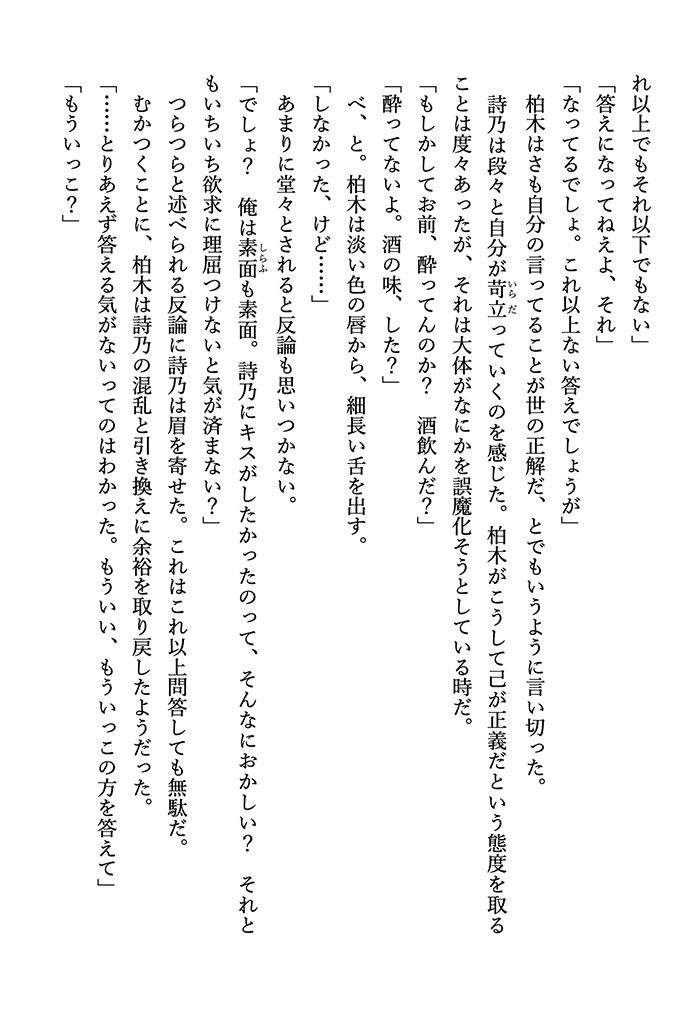 れ以上でもそれ以下でもない」
「答えになってねえよ、それ」
「なってるでしょ。これ以上ない答えでしょうが」
　柏木はさも自分の言ってることが世の正解だ、とでもいうように言い切った。
　詩乃は段々と自分が苛立っていくのを感じた。柏木がこうして己が正義だという態度を取る
ことは度々あったが、それは大体がなにかを誤魔化そうとしている時だ。
「もしかしてお前、酔ってんのか？　酒飲んだ？」
「酔ってないよ。酒の味、した？」
　べ、と。柏木は淡い色の唇から、細長い舌を出す。
「しなかった、けど……」
　あまりに堂々とされると反論も思いつかない。
「でしょ？　俺は素面も素面。詩乃にキスがしたかったのって、そんなにおかしい？　それと
もいちいち欲求に理屈つけないと気が済まない？」
　つらつらと述べられる反論に詩乃は眉を寄せた。これはこれ以上問答しても無駄だ。
　むかつくことに、柏木は詩乃の混乱と引き換えに余裕を取り戻したようだった。
「……とりあえず答える気がないってのはわかった。もういい、もういっこの方を答えて」
「もういっこ？」